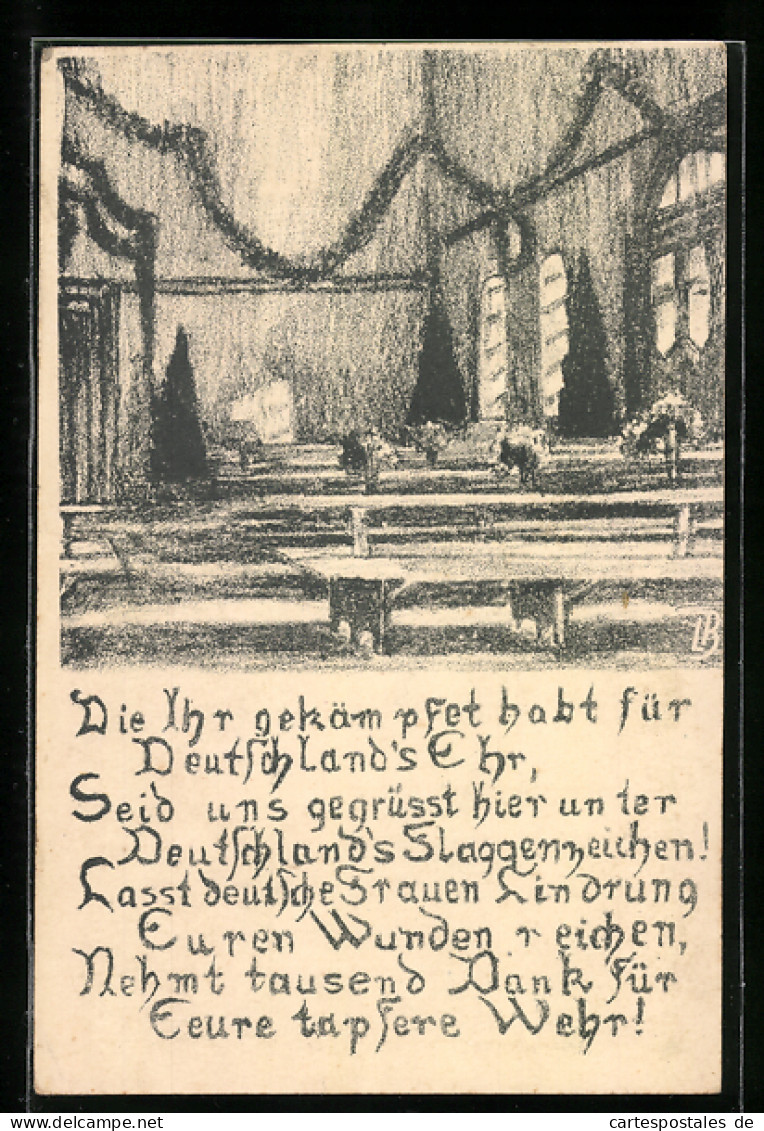 LB
Die Ihr gekämpfet habt für
Deutschland's Ehr,
Seid uns gegrüsst hier unter
Deutschland's Flaggenzeichen!
Lasst deutsche Frauen Lindrung
Euren Wunden reichen,
Nehmt tausend Dank für
Eeure tapfere Wehr!
cartespostales de